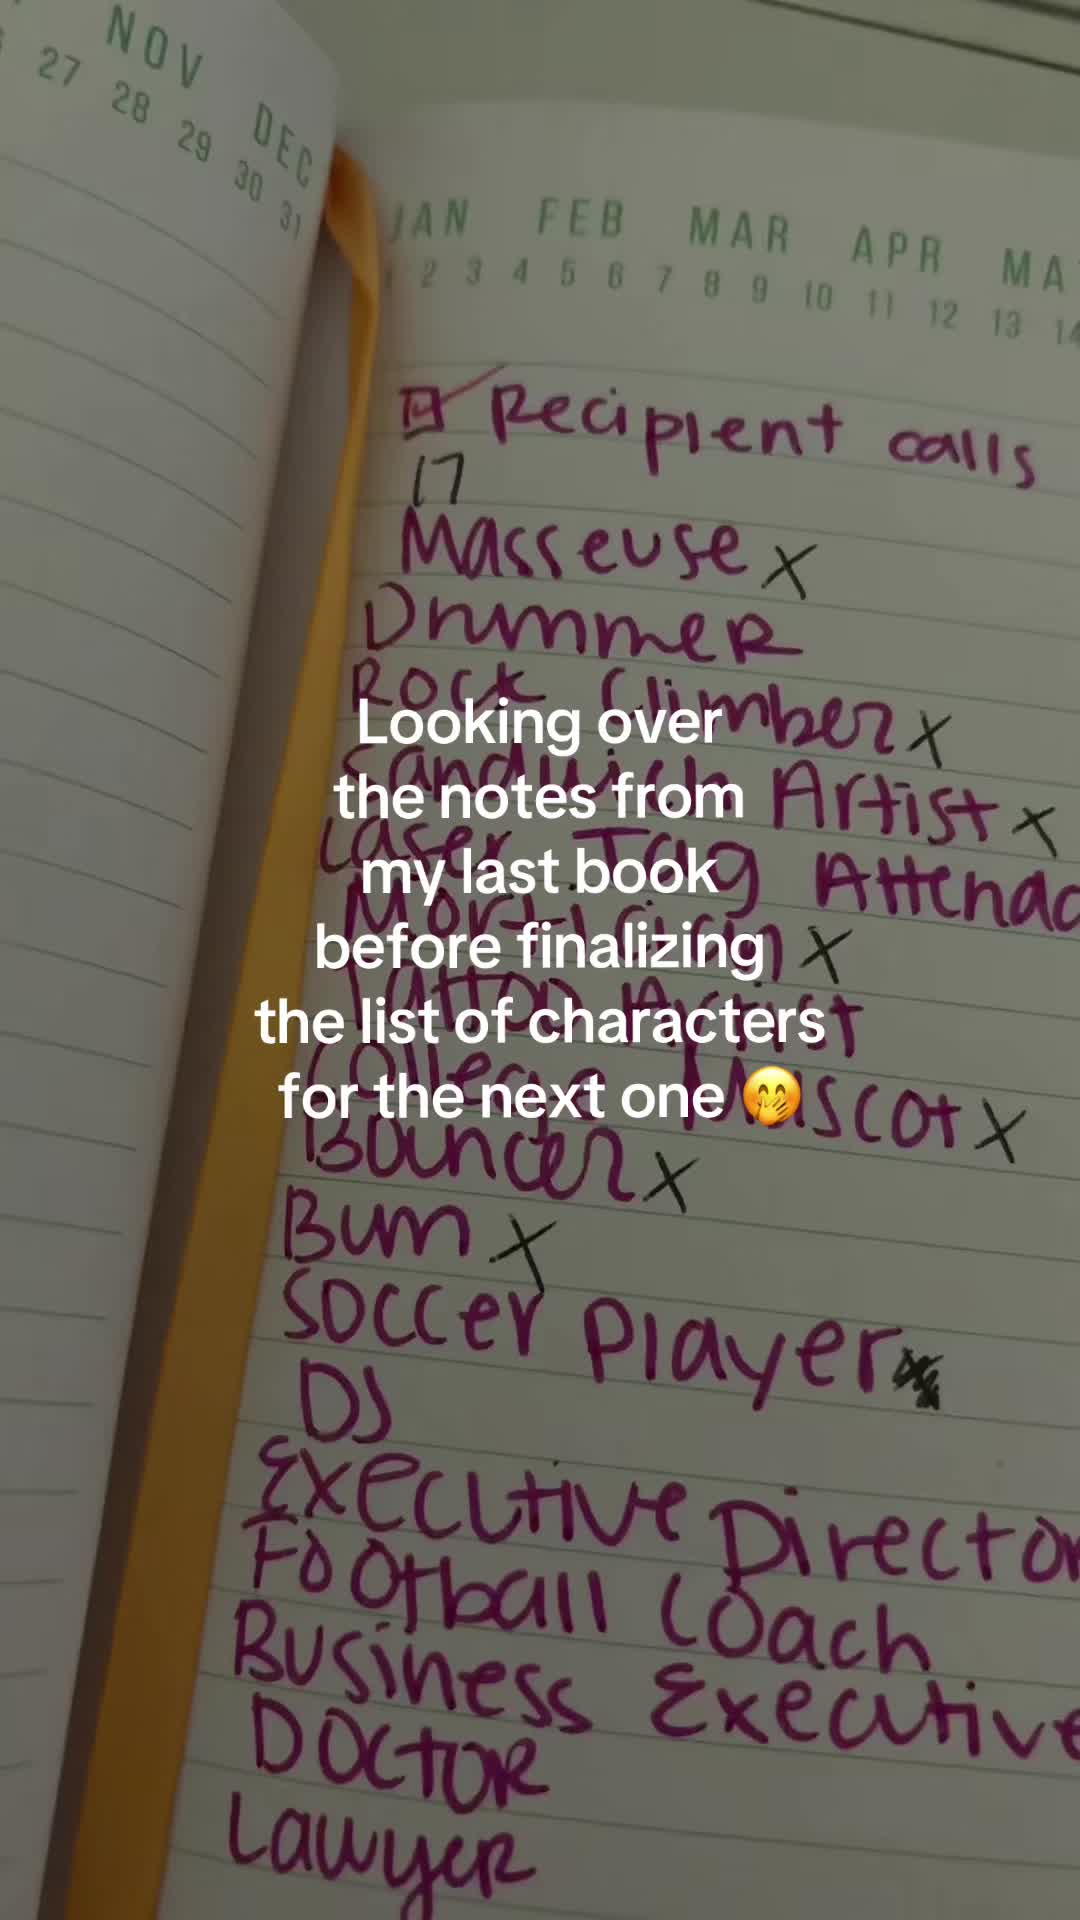 NOV DEC
27 28 29 30 31
JAN FEB MAR APR MA
2 3 4 5 6 7 8 9 10 11 12 13 14
Recipient calls
17
Masseuse x
Drummer
Rock Climber x
Sandwich Artist x
Laser Tag Attenda
Mortician x
Tattoo Artist
College Mascot x
Bouncer x
Bum x
Soccer Player
DJ
Executive Director
Football Coach
Business Executive
Doctor
Lawyer
Looking over
the notes from
my last book
before finalizing
the list of characters
for the next one 🤭